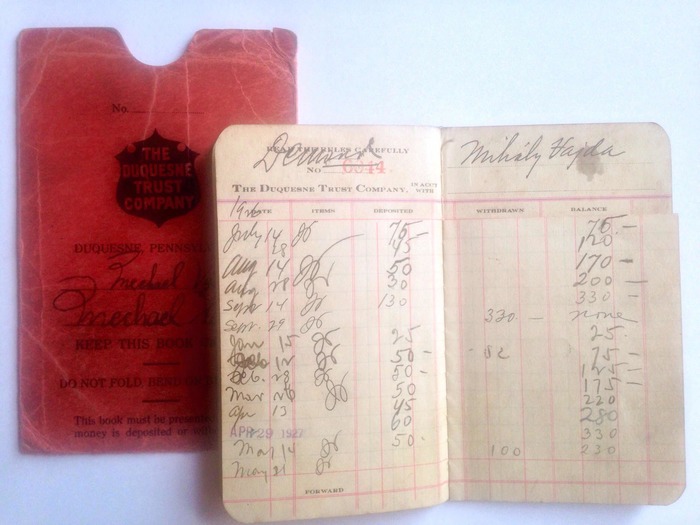 No.
THE
DUQUESNE
TRUST
COMPANY
DUQUESNE, PENNSYLV
Mechael
Mechael
KEEP THIS BOOK
DO NOT FOLD, BEND OR
This book must be
money is deposited or
READ THE RULES CAREFULLY
NO
THE DUQUESNE TRUST COMPANY, IN ACCT WITH
Mihály Hajda
DATE ITEMS DEPOSITED WITHDRAWN BALANCE
1926
July 14 75 75.-
28 45 120
Aug 14 50 170 -
Aug 28 30 200 -
Sept 14 130 330 -
Sept. 29 330 - none
Jan 15 25 25.
Feb 12 50 - 75 -
Feb. 28 50 - 125 -
Mar 26 50 175 -
Apr 13 45 220
APR 29 1927 60 280
May 14 50. 330
May 31 100 230
FORWARD